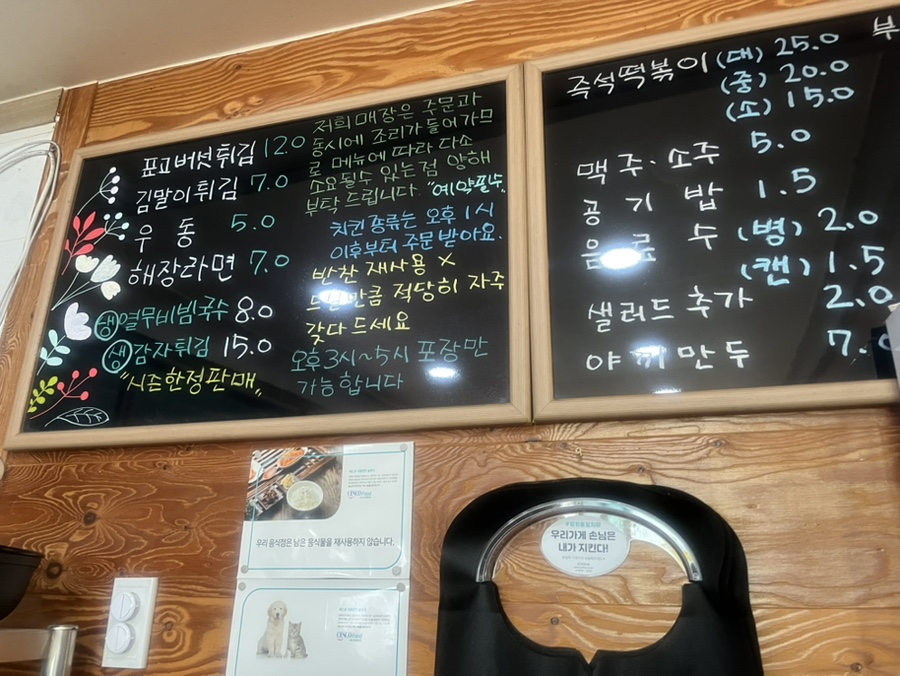 표고버섯튀김 12.0
김말이튀김 7.0
우동 5.0
해장라면 7.0
생 열무비빔국수 8.0
생 감자튀김 15.0
"시즌한정판매"
저희 매장은 주문과
동시에 조리가 들어가므
로 메뉴에 따라 다소
소요될수 있는점 양해
부탁 드립니다. "예약필수"
치킨 종류는 오후 1시
이후부터 주문 받아요.
반찬 재사용 X
드실만큼 적당히 자주
갖다 드세요
오후3시~5시 포장만
가능합니다
부
즉석떡볶이 (대) 25.0
(중) 20.0
(소) 15.0
맥주·소주 5.0
공기밥 1.5
음료수 (병) 2.0
(캔) 1.5
샐러드추가 2.0
야끼만두 7.0
우리 음식점은 남은 음식물을 재사용하지 않습니다.
우리가게 손님은
내가 지킨다!